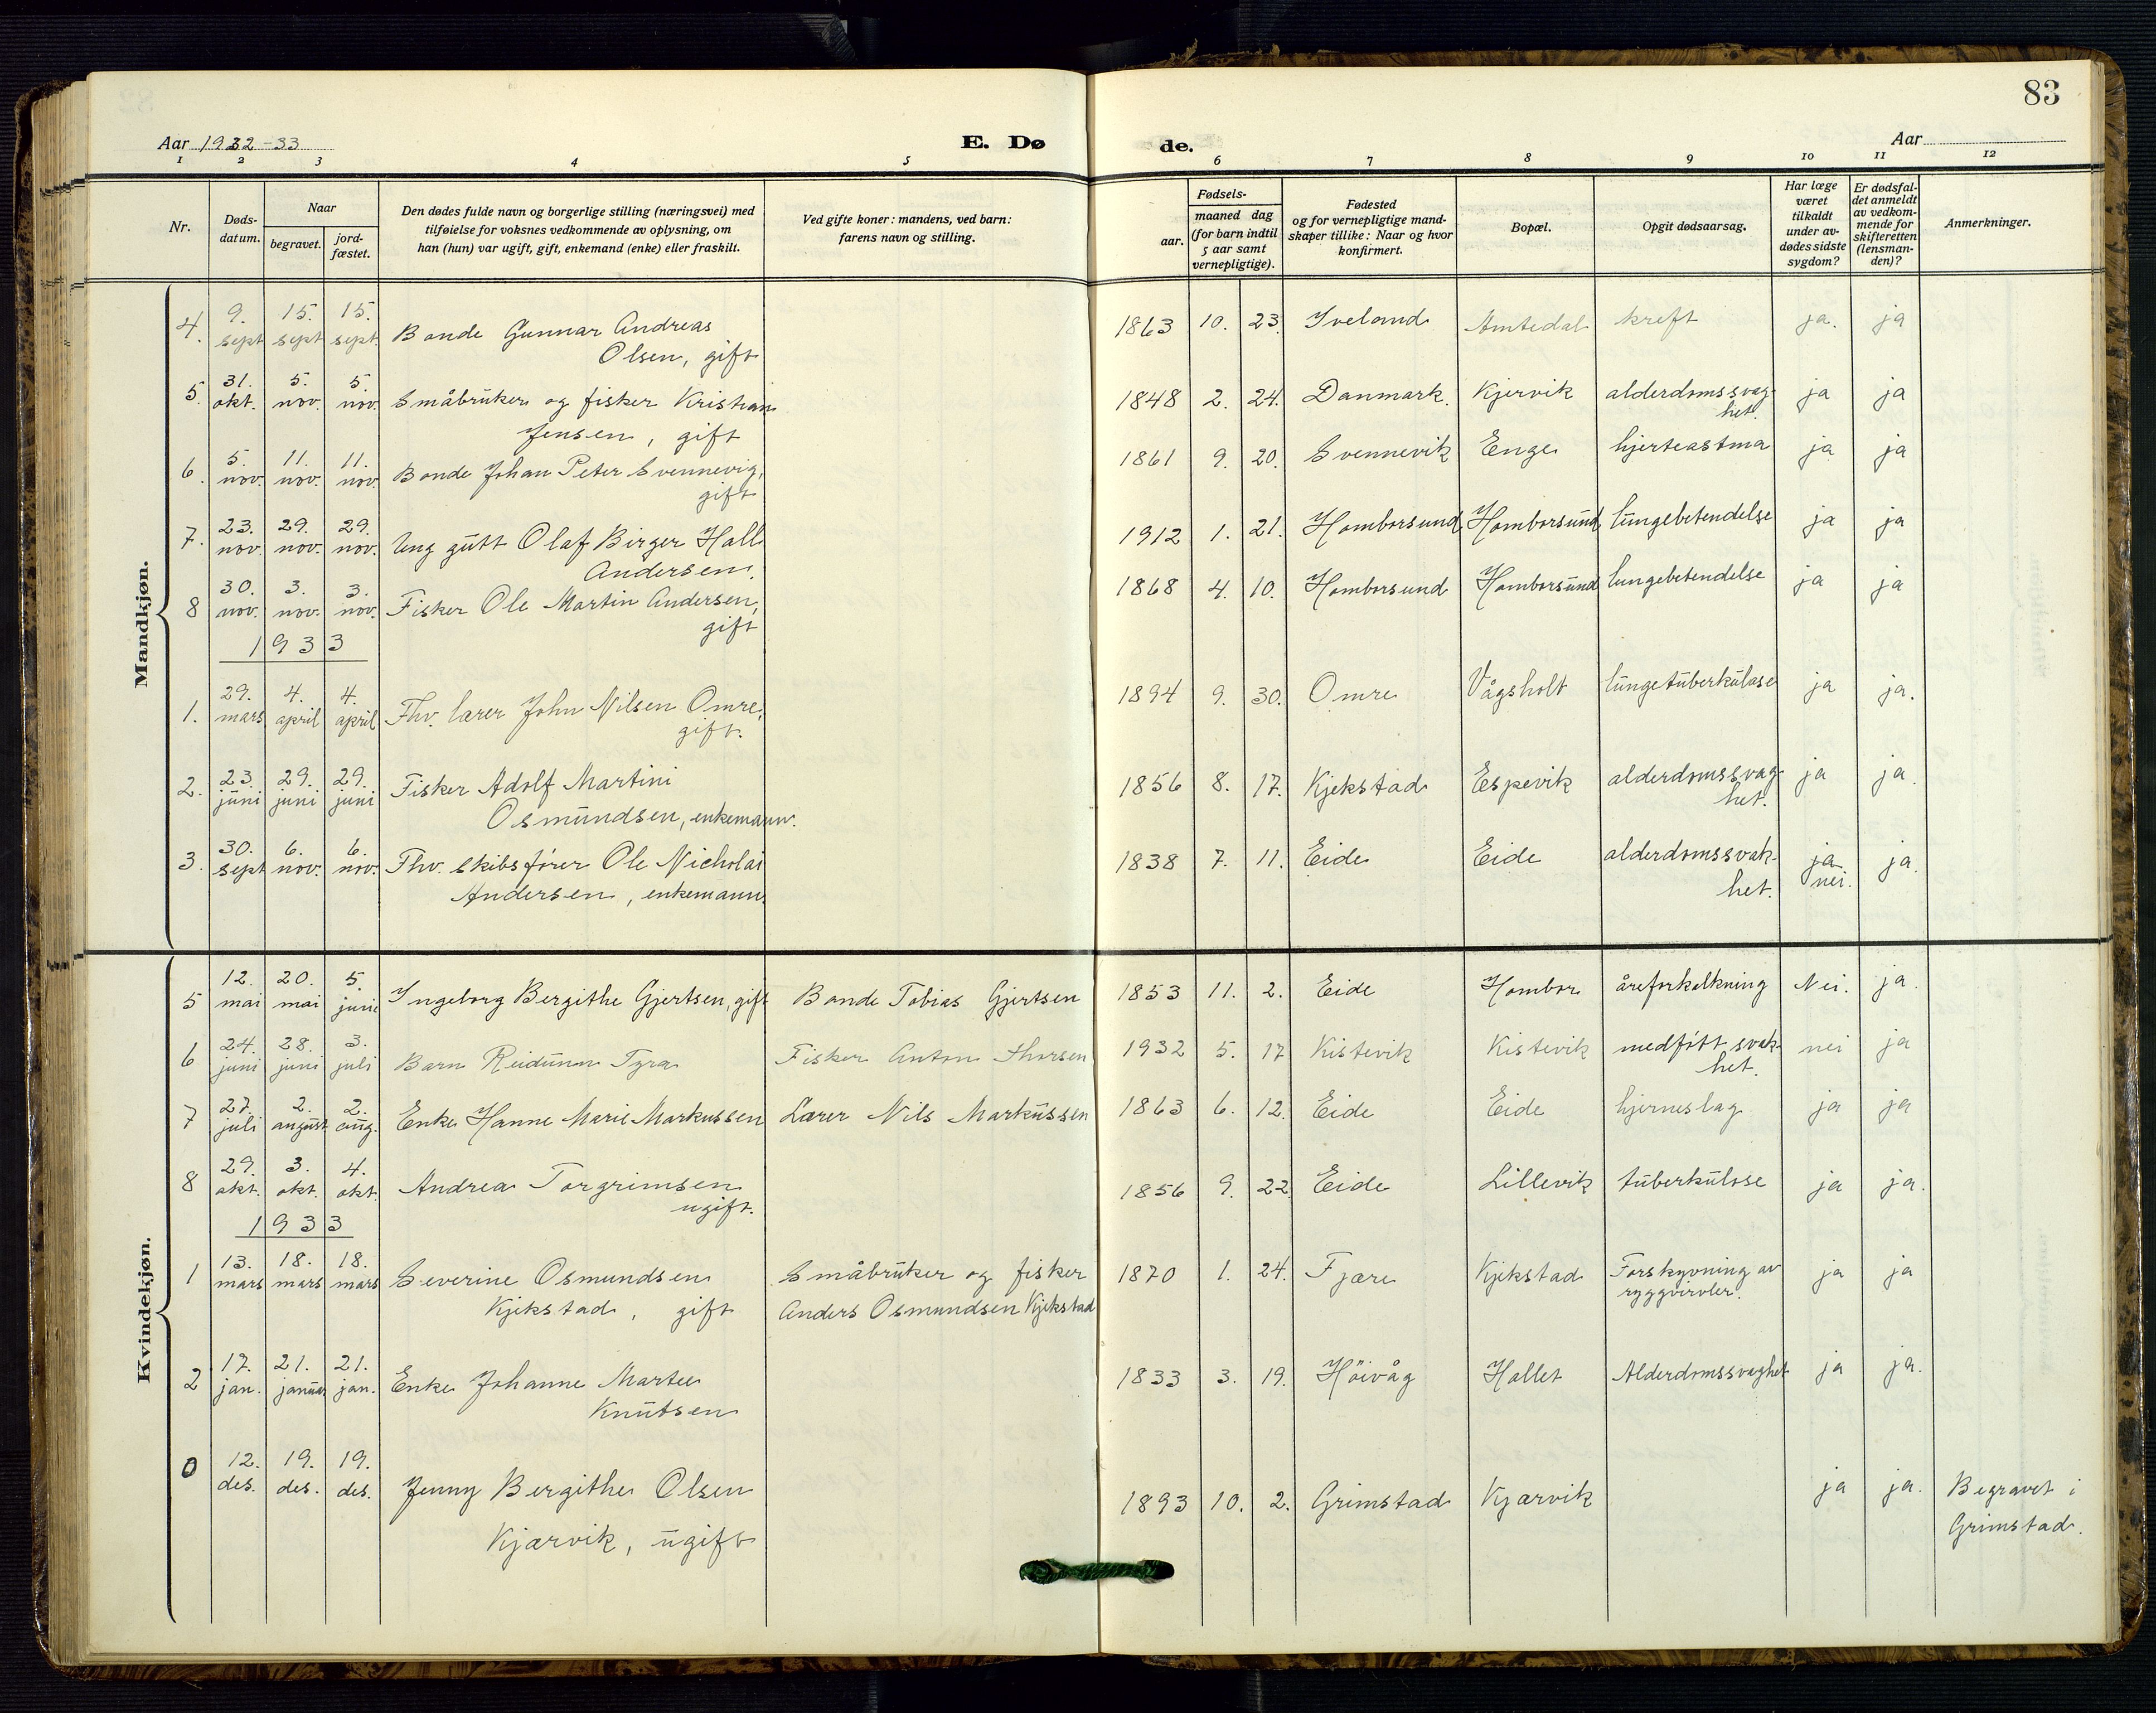 83
Aar 1932-33
E. Dø
de.
Aar
1 2 3 4 5 6 7 8 9 10 11 12
Nr.
Døds-
datum.
Naar
begravet.
jord-
fæstet.
Den dødes fulde navn og borgerlige stilling (næringsvei) med
tilføielse for voksnes vedkommende av oplysning, om
han (hun) var ugift, gift, enkemand (enke) eller fraskilt.
Ved gifte koner: mandens, ved barn:
farens navn og stilling.
Fødsels-
aar.
maaned dag
(for barn indtil
5 aar samt
vernepligtige).
Fødested
og for vernepligtige mand-
skaper tillike: Naar og hvor
konfirmert.
Bopæl.
Opgit dødsaarsag.
Har læge
været
tilkaldt
under av-
dødes sidste
sygdom?
Er dødsfal-
det anmeldt
av vedkom-
mende for
skifteretten
(lensman-
den)?
Anmerkninger.
Mandkjøn.
4. 9. sept 15. sept 15. sept. Bonde Gunnar Andreas
Olsen, gift
1863 10. 23. Iveland Amtedal kreft ja. ja
5. 31. okt. 5. nov. 5. nov. Småbruker og fisker Kristian
Jensen, gift
1848 2. 24. Danmark. Kjervik alderdomssvag-
het. ja ja
6. 5. nov. 11. nov. 11. nov. Bonde Johan Peter Svennevig,
gift
1861 9. 20. Svennevik Enge hjerteastma ja ja
7. 23. nov. 29. nov. 29. nov. Ung gutt Olaf Birger Hall
Andersen.
1912 1. 21. Homborsund Homborsund lungebetendelse ja ja
8 30. nov. 3. nov. 3. nov. Fisker Ole Martin Andersen,
gift
1868 4. 10. Homborsund Homborsund lungebetendelse ja ja
1933
1. 29. mars 4. april 4. april Fhv. lærer John Nilsen Omre,
gift.
1894 9. 30. Omre Vågsholt lungetuberkulose ja ja.
2. 23. juni 29. juni 29. juni Fisker Adolf Martini
Osmundsen, enkemann.
1856 8. 17. Kjekstad Espevik alderdomssvag-
het. ja ja.
3. 30. sept 6. nov. 6. nov. Fhv. skibsfører Ole Nicholai
Andersen, enkemann.
1838 7. 11. Eide Eide alderdomssvak-
het. ja nei. ja.
Kvindekjøn.
5 12. mai 20. mai 5. juni Ingeborg Bergithe Gjertsen, gift Bonde Tobias Gjertsen
1853 11. 2. Eide Hombor åreforkalkning Nei. ja.
6 24. juni 28. juni 3. juli Barn Reidunn Tyra Fisker Anton Thorsen
1932 5. 17 Kistevik Kistevik medfött svak-
het. nei ja
7 27. juli 2. august 2. aug. Enke Hanne Marie Markussen Lærer Nils Markussen
1863 6. 12. Eide Eide hjerneslag ja ja
8 29. okt. 3. okt. 4. okt. Andrea Torgrimsen
ugift.
1856 9. 22 Eide Lillevik tuberkulose ja ja.
1933
1 13. mars 18. mars 18. mars Severine Osmundsen Småbruker og fisker
Kjekstad, gift Anders Osmundsen Kjekstad
1870 1. 24. Fjære Kjekstad Forskyvning av
ryggvirvler. ja ja
2 17. jan. 21. januar 21. jan. Enke Johanne Martee
Knutsen
1833 3. 19. Höivåg Hollet Alderdomssvaghet ja ja.
0 12. des. 19. des. 19. des. Jenny Bergithe Olsen
Kjærvik, ugift
1893 10. 2. Grimstad Kjærvik ja ja. Begravet i
Grimstad.